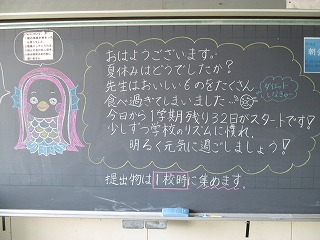 おはようございます。
夏休みはどうでしたか?
先生はおいしいものをたくさん
食べ過ぎてしまいました…
ダイエット
しなきゃ
今日から1学期残り32日がスタートです!
少しずつ学校のリズムに慣れ、
明るく元気に過ごしましょう!
提出物は1校時に集めます。
朝